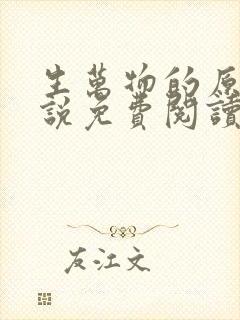 生萬物的原
說免費閱讀
友江文